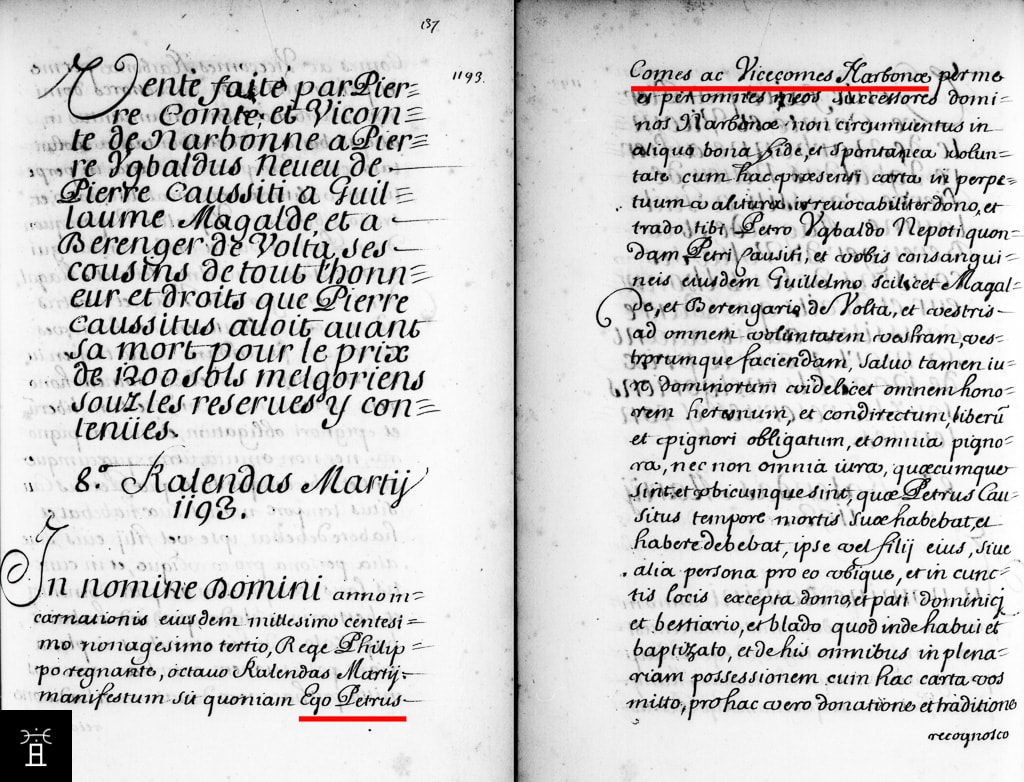 137
1193.
Vente faite par Pier=
re Comte, et Vicom=
te de Narbonne a Pier=
re Ygbaldus Neueu de
Pierre Caussiti a Guil=
laume Magalde, et a
Berenger de Volta, ses
cousins de tout lhonn=
eur et droits que Pierre
Caussitus auoit auant
sa mort pour le prix
de 1200 sols melgoriens
souz les reserues y con=
tenües.
8.º Kalendas Martij
1193.
In nomine Domini anno in=
carnationis eiusdem millesimo centesi=
mo nonagesimo tertio, Rege Philip=
po regnante, octauo Kalendas Martij.
manifestum sit quoniam Ego Petrus
Comes ac Vicecomes Narbonæ per me
et per omnes meos successores domi=
nos Narbonæ non circumuentus in
aliquo bona fide, et spontanea volun=
tate cum hac præsenti carta in perpe=
tuum valitura irreuocabiliter dono, et
trado tibi Petro Ygbaldo Nepoti quon=
dam Petri Causiti, et vobis consangui=
neis eiusdem Guillelmo scilicet Magal=
de, et Berengario de Volta, et vestris
ad omnem voluntatem vestram, ves=
trorumque faciendam, saluo tamen iu=
re dominorum videlicet omnem hono=
rem heremum, et condirectum, liberū
et pignori obligatum, et omnia pigno=
ra, nec non omnia iura, quæcumque
sint et vbicumque sint, quæ Petrus Cau=
situs tempore mortis suæ habebat, et
habere debebat, ipse vel filij eius, siue
alia persona pro eo vbique, et in cunc=
tis locis excepta domo, et pati dominicj
et bestiario, et blado quod inde habui et
baptizato, et de his omnibus in plena=
riam possessionem cum hac carta vos
mitto, pro hac vero donatione et traditione
recognosco